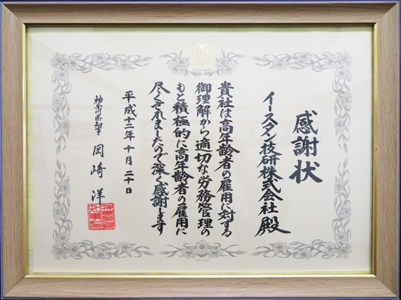 感謝状
イースタン技研株式会社 殿
貴社は高年齢者の雇用に対する
御理解から適切な労務管理の
もと積極的に高年齢者の雇用に
尽くされましたので深く感謝します
平成十二年十月二十日
神奈川県知事 岡崎 洋